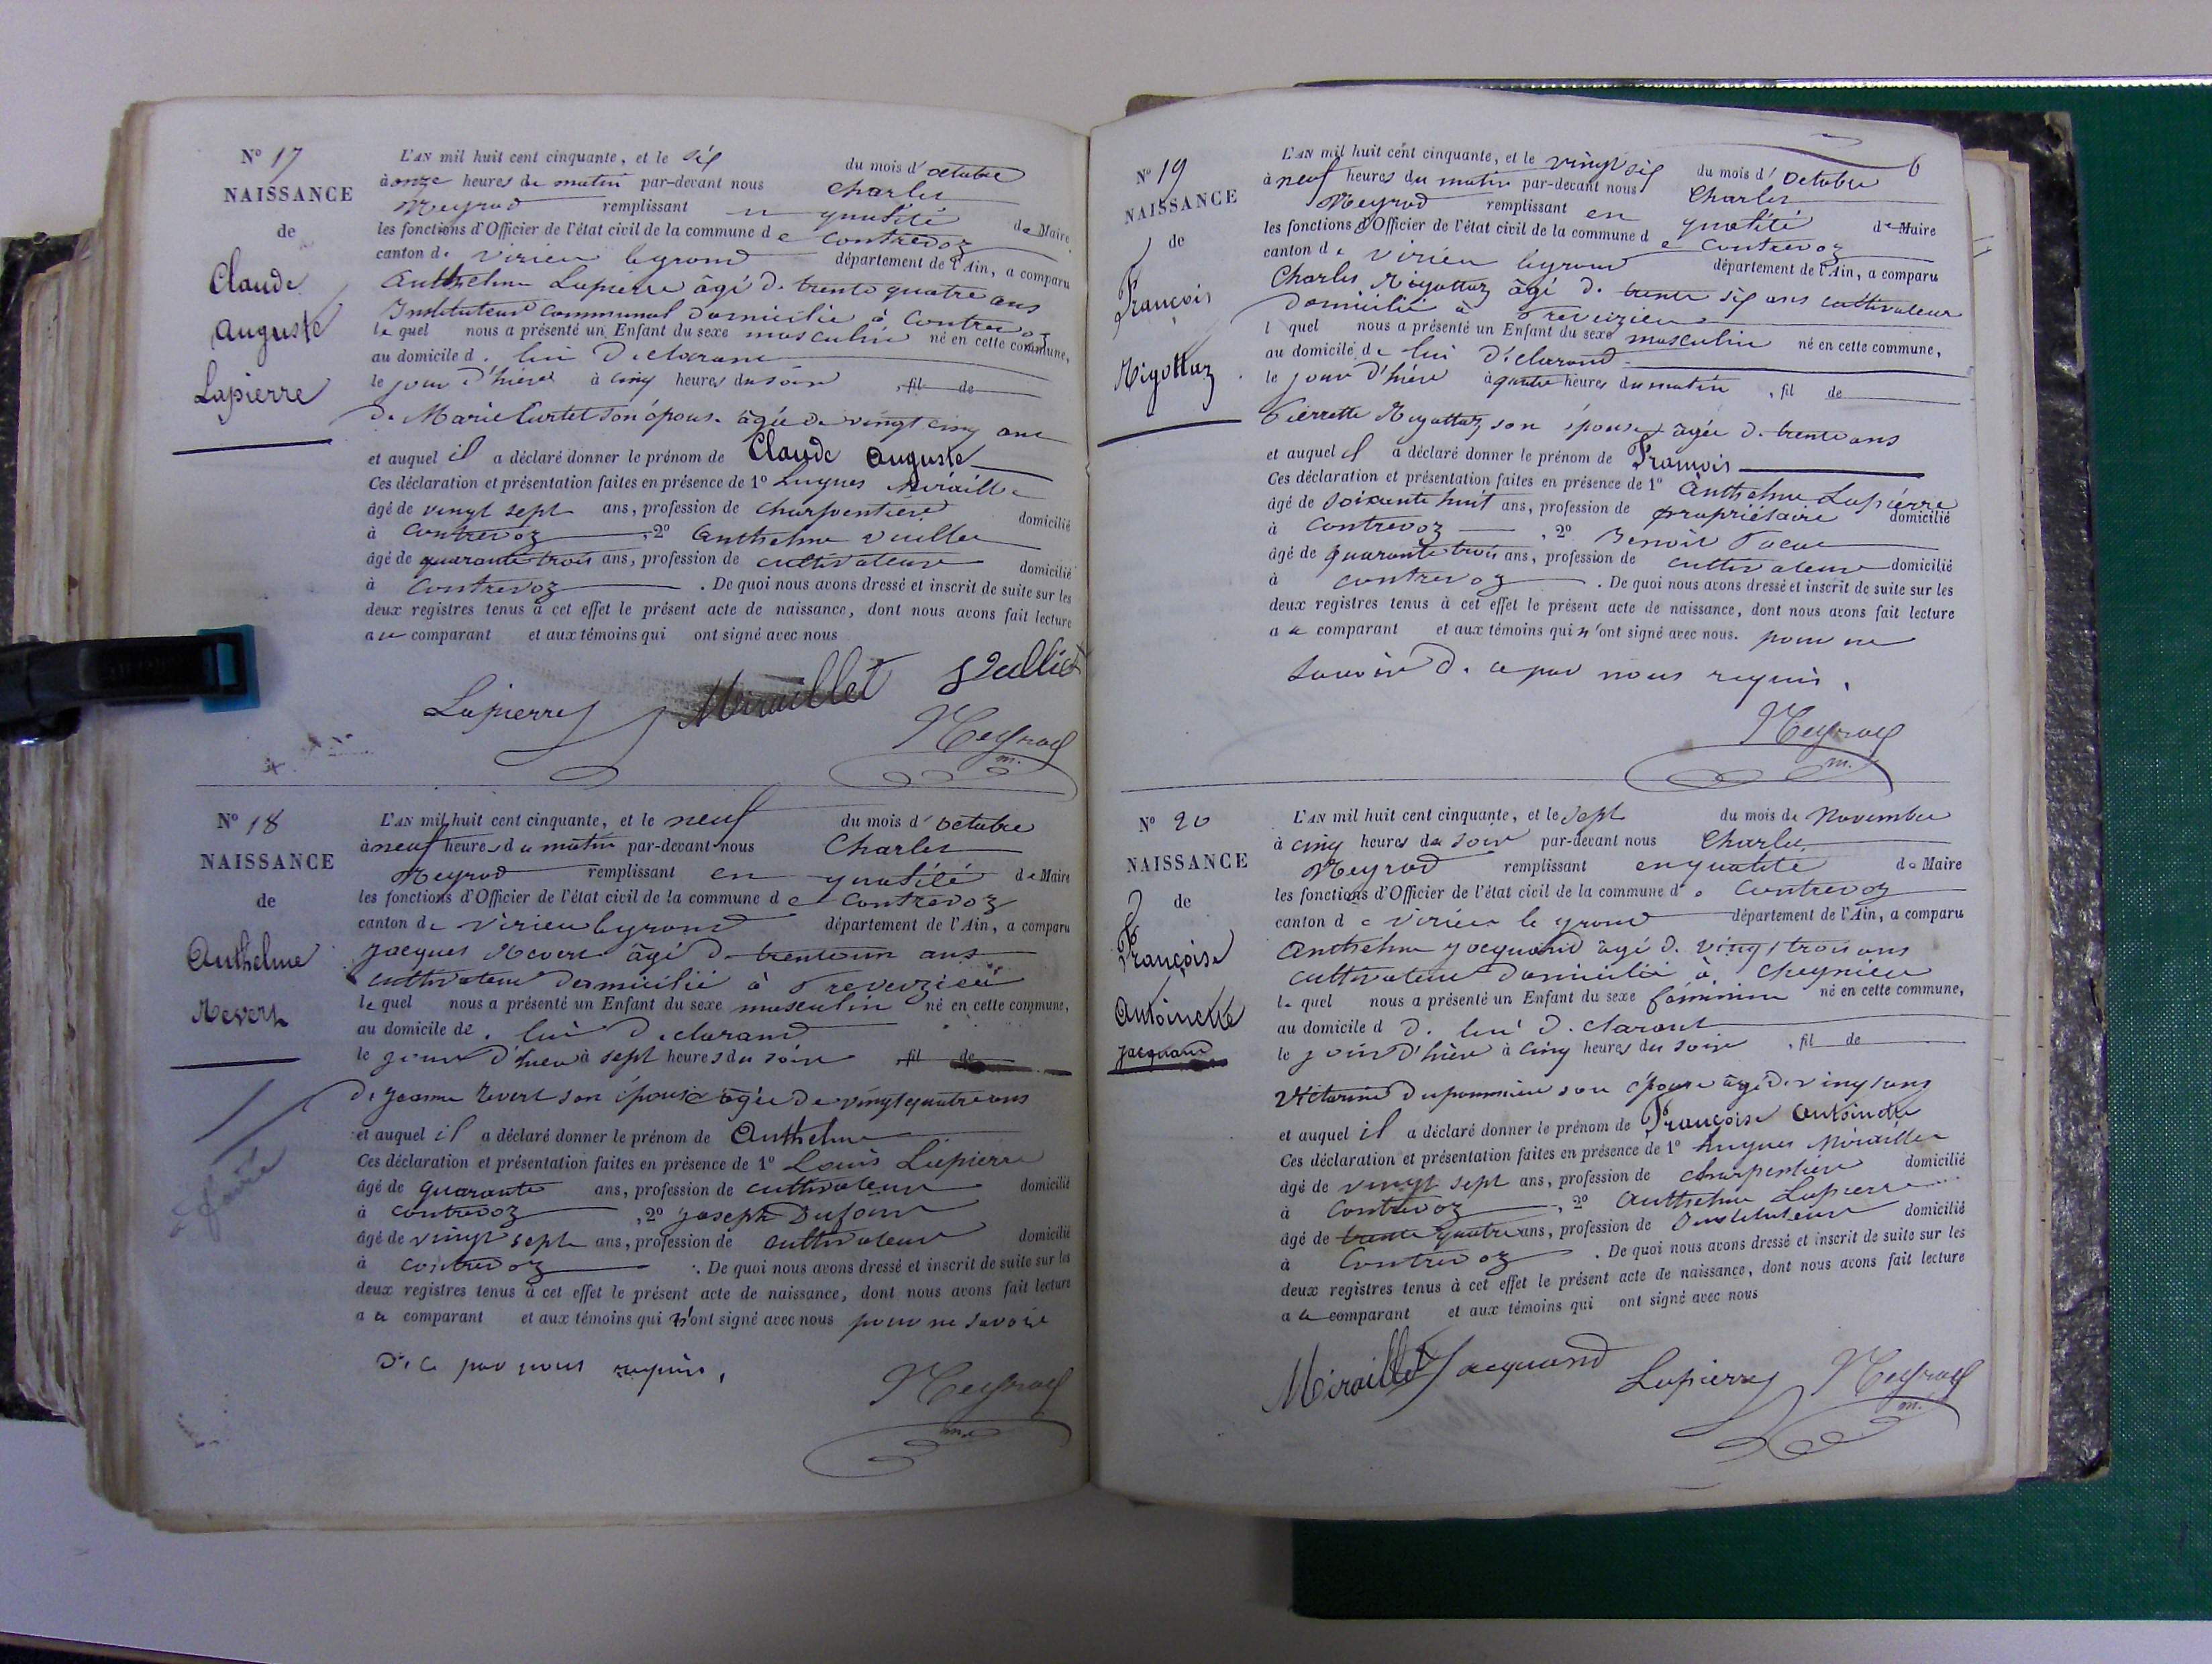 N° 17
NAISSANCE
de
Claude
auguste
Lapierre
L'AN mil huit cent cinquante, et le six du mois d'octobre
à onze heures du matin par-devant nous Charles
Meyrod remplissant en qualité de Maire
les fonctions d'Officier de l'état civil de la commune de Contrevoz
canton de virieu legrand département de l'Ain, a comparu
Anthelme Lapierre âgé de trente quatre ans
Instituteur Communal domicilié à Contrevoz
le quel nous a présenté un Enfant du sexe masculin né en cette commune,
au domicile d. lui déclarant
le jour d'hièr à cinq heures du soir , fil de
de Marie Curtet son épouse âgée de vingt cinq ans
et auquel il a déclaré donner le prénom de Claude auguste
Ces déclaration et présentation faites en présence de 1° hugues Miraillet
âgé de vingt sept ans, profession de charpentière domicilié
à Contrevoz , 2° Anthelme vuillet
âgé de quarante trois ans, profession de cultivateur domicilié
à Contrevoz . De quoi nous avons dressé et inscrit de suite sur les
deux registres tenus à cet effet le présent acte de naissance, dont nous avons fait lecture
au comparant et aux témoins qui ont signé avec nous
Lapierre Miraillet Vulliet
Meyrod
m.
N° 18
NAISSANCE
de
Anthelme
Revert
L'AN mil huit cent cinquante, et le neuf du mois d'octobre
à neuf heures du matin par-devant nous Charles
Meyrod remplissant en qualité de Maire
les fonctions d'Officier de l'état civil de la commune de Contrevoz
canton de virieu legrand département de l'Ain, a comparu
Jacques Revert âgé de trente un ans
cultivateur domicilié à Preveyzieu
le quel nous a présenté un Enfant du sexe masculin né en cette commune,
au domicile de lui déclarant
le jour d'hier à sept heures du soir fil de
de Jeanne Revert son épouse âgée de vingt quatre ans
et auquel il a déclaré donner le prénom de Anthelme
Ces déclaration et présentation faites en présence de 1° Louis Lapierre
âgé de quarante ans, profession de cultivateur domicilié
à Contrevoz , 2° Joseph Dufour
âgé de vingt sept ans, profession de cultivateur domicilié
à Contrevoz . De quoi nous avons dressé et inscrit de suite sur les
deux registres tenus à cet effet le présent acte de naissance, dont nous avons fait lecture
a u comparant et aux témoins qui n'ont signé avec nous pour ne savoir
de ce par nous requis.
Meyrod
m.
6
N° 19
NAISSANCE
de
François
Rigottaz
L'AN mil huit cent cinquante, et le vingt six du mois d'octobre
à neuf heures du matin par-devant nous Charles
Meyrod remplissant en qualité de Maire
les fonctions d'Officier de l'état civil de la commune de Contrevoz
canton de virieu legrand département de l'Ain, a comparu
Charles Rigottaz âgé de trente six ans cultivateur
domicilié à Preveyzieu
l quel nous a présenté un Enfant du sexe masculin né en cette commune,
au domicile de lui déclarand
le jour d'hière à quatre heures du matin , fil de
Pierrette Rigottaz son épouse âgée de trente ans
et auquel il a déclaré donner le prénom de François
Ces déclaration et présentation faites en présence de 1° Anthelme Lapierre
âgé de soixante huit ans, profession de propriétaire domicilié
à Contrevoz , 2° Benoit
âgé de quarante trois ans, profession de cultivateur domicilié
à Contrevoz . De quoi nous avons dressé et inscrit de suite sur les
deux registres tenus à cet effet le présent acte de naissance, dont nous avons fait lecture
a u comparant et aux témoins qui n'ont signé avec nous. pour ne
savoir de ce par nous requis.
Meyrod
m.
N° 20
NAISSANCE
de
Françoise
Antoinette
Jacquand
L'AN mil huit cent cinquante, et le sept du mois de Novembre
à cinq heures du soir par-devant nous Charles
Meyrod remplissant en qualité de Maire
les fonctions d'Officier de l'état civil de la commune de Contrevoz
canton de Virieu le grand département de l'Ain, a comparu
Anthelme Jacquand âgé de vingt trois ans
cultivateur domicilié à Cheynieu
le quel nous a présenté un Enfant du sexe féminin né en cette commune,
au domicile d de lui déclarant
le jour d'hière à cinq heures du soir , fil de
Victorine Dupommier son épouse âgé de vingt ans
et auquel il a déclaré donner le prénom de Françoise Antoinette
Ces déclaration et présentation faites en présence de 1° hugues Miraillet
âgé de vingt sept ans, profession de charpentière domicilié
à Contrevoz , 2° Anthelme Lapierre
âgé de trente quatre ans, profession de Instituteur domicilié
à Contrevoz . De quoi nous avons dressé et inscrit de suite sur les
deux registres tenus à cet effet le présent acte de naissance, dont nous avons fait lecture
a u comparant et aux témoins qui ont signé avec nous
Miraillet Jacquand Lapierre Meyrod
m.